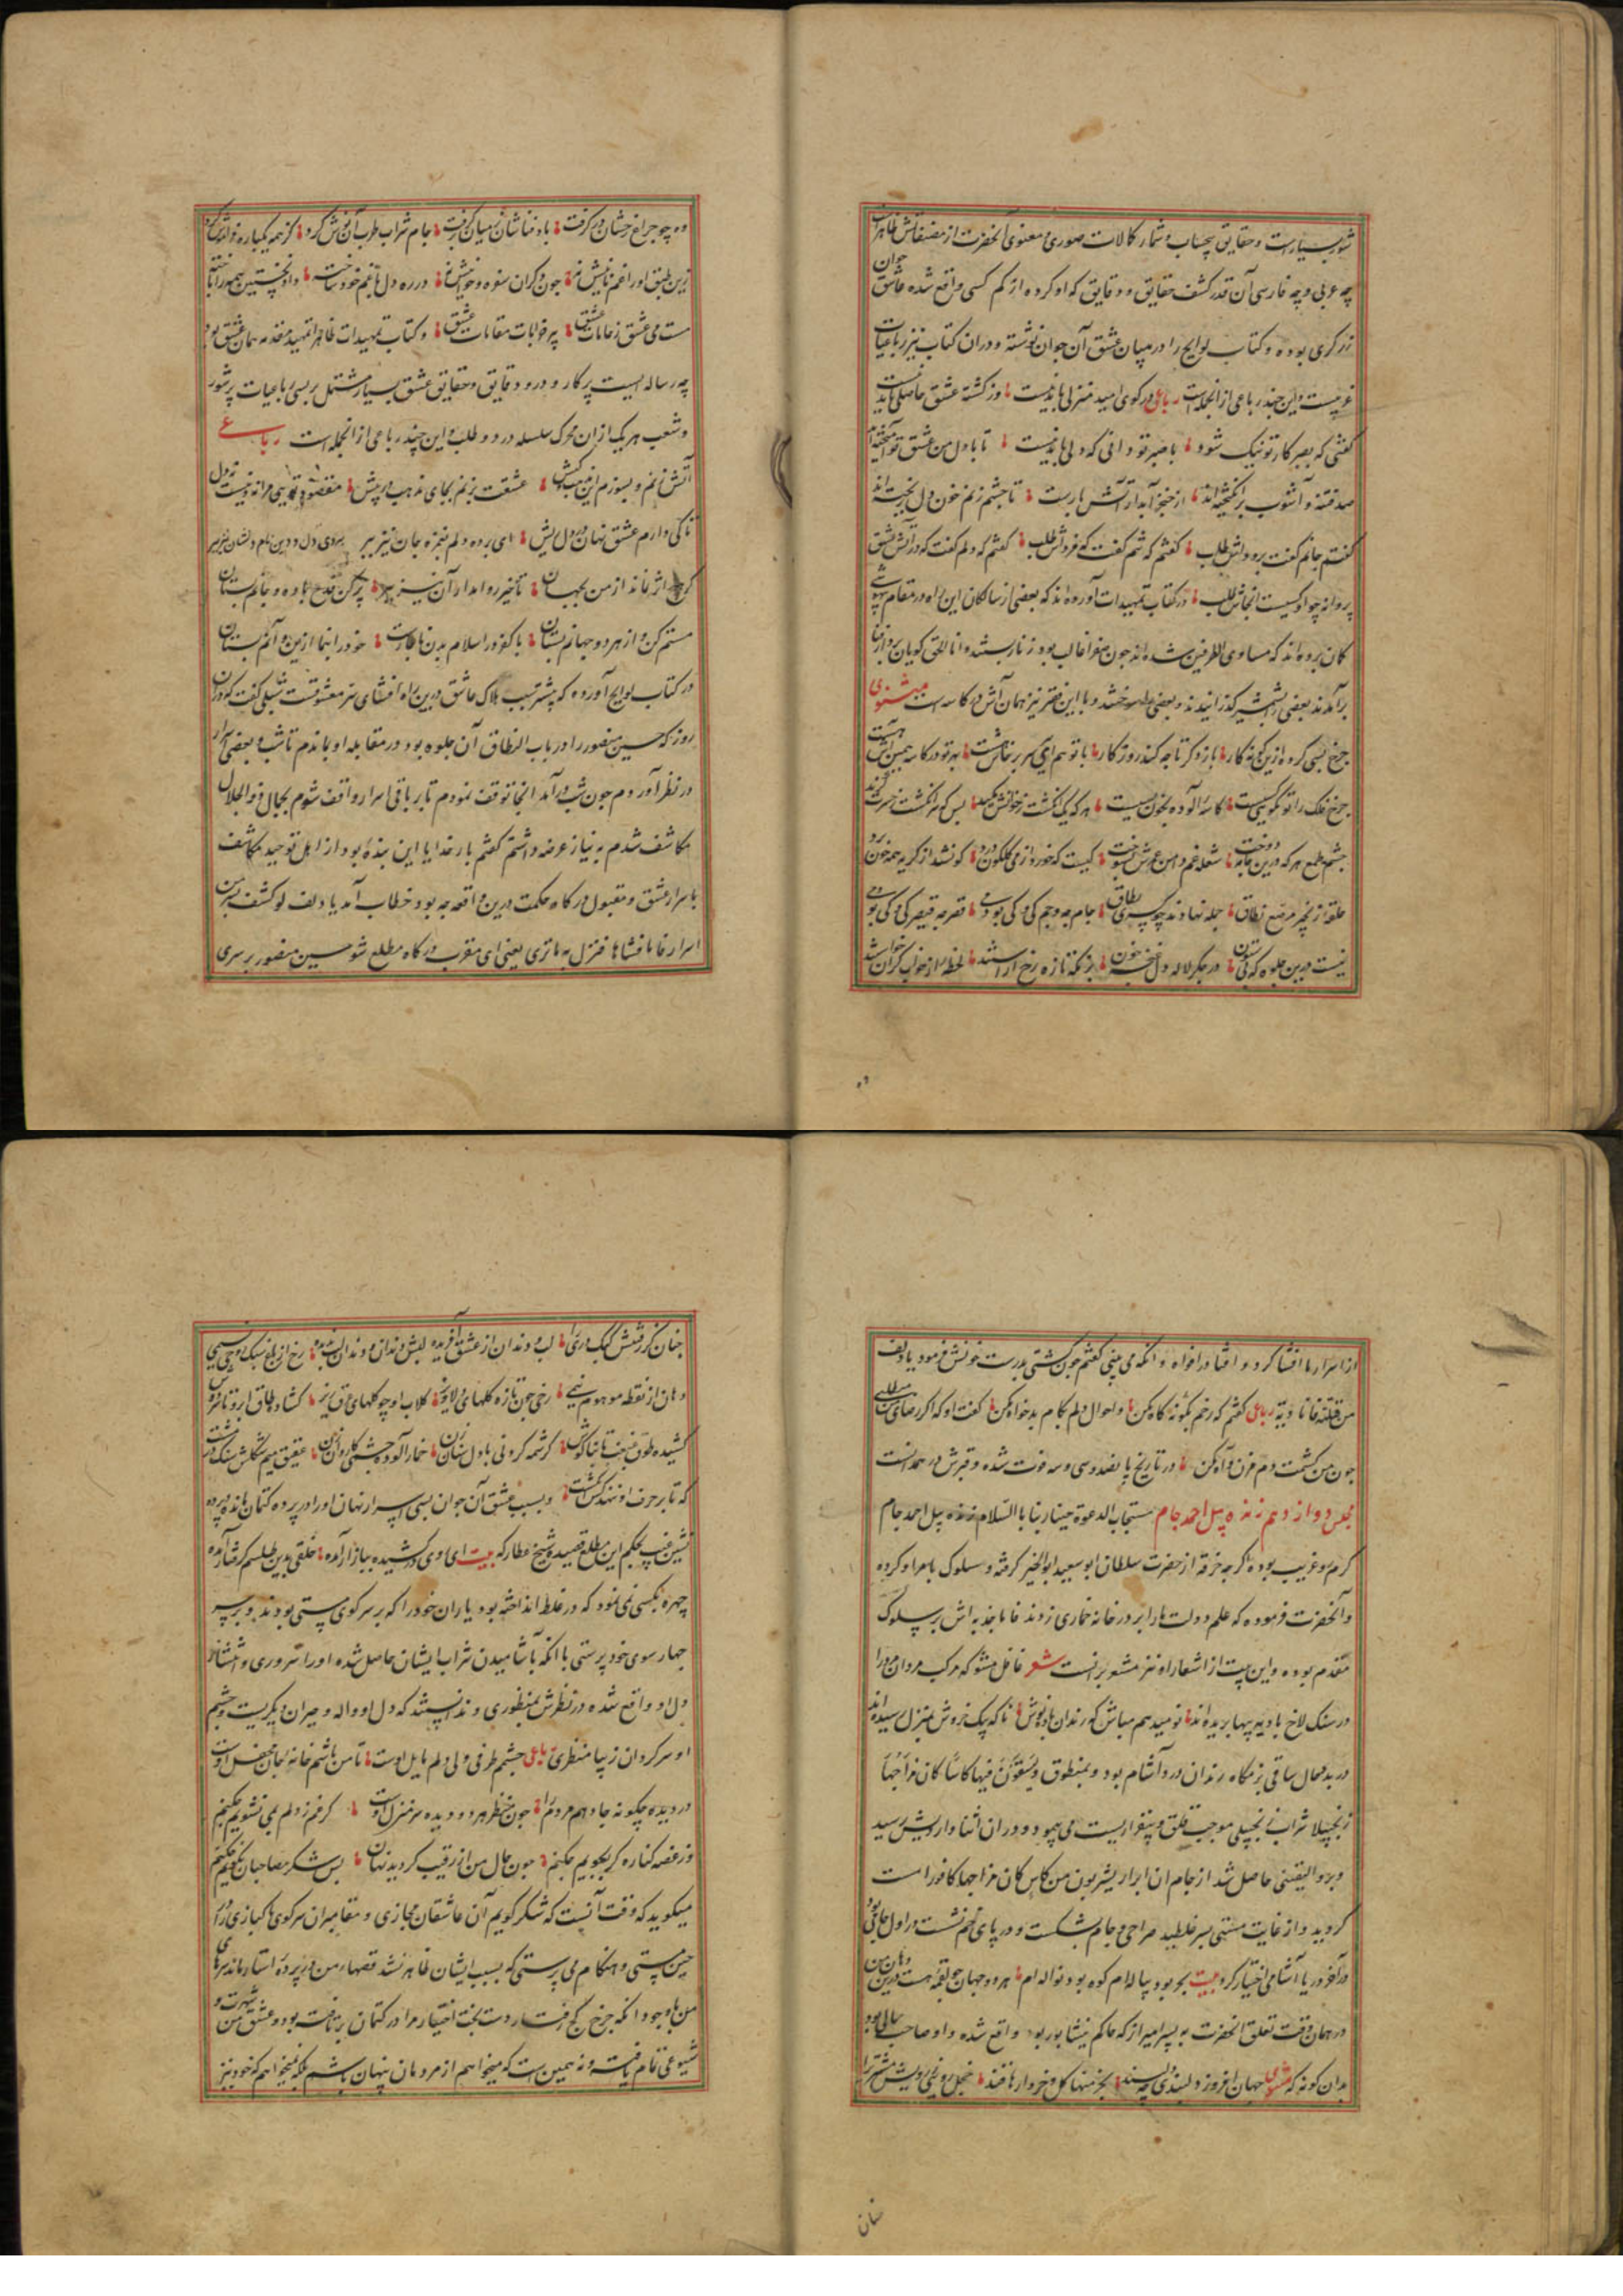 شورست و حقایق بیحساب و شمار کالات صوری و معنوی آنحضرت از مصنفاتش ظاهرست
چه عربی و چه فارسی آن قدر کشف حقایق و دقایق که او کرده از کم کسی واقع شده عاشق جوان
زرگری بوده و کتاب لوایح را در میان عشق آن جوان نوشته و دران کتاب نیز رباعیات
غریبست و این چند رباعی از انجمله است رباعی در کوی امید منزلی بایدنیست وز کشته عشق حاصلی بایدنیست
گفتی که بصبر کار تو نیک شود با صبر تو دانی که دلی باید نیست تا با دل من عشق تو آمیخته‌اند
صد فتنه و آشوب برانگیخته‌اند از خنجر آبدار آتش بارت تا چشم زنم خون دل ریخته‌اند
گفتم جانم گفت برو دلش طلب گفتم که شم گفت که فروش طلب گفتم که دلم گفت که در آتش عشق
پروانه چو اوکیست انجاش طلب در کتاب تمهیدات آورده‌اند که بعضی از سالکان این راه در مقام بیهوشی
کمان برده‌اند که مساوی الطرفین شده‌اند چون هوا غالب بود زنار بستند و انا الحق گویان بر دار فنا
برآمدند بعضی را بشمشیر گذرانیدند و بعضی را سوختند و با این فقیر نیز همان آش در کاسه است مثنوی
چرخ بسی کرده ازین گونه کار باز دگر تا چه کند روزگار با تو هم ای سر برخاش هست بهر تو در کاسه همین آش هست
چرخ فلک را تو نگویی کیست کاسه آلوده بخون بیست هر که یک انگشت ز خوانش مکید بس که سر انگشت بحسرت گزید
چشم طمع هر که درین جامه دوخت شعله غم دامن عمرش بسوخت کیست که خورد از می گلگون درد کو نشد از گریه همه خون
حلقه زنجیر مرصع نطاق جمله نهادند چو کسری بطاق جام چه و جم کی و کی بود می قصر چه قیصر کی و کی بود می
نیست درین جلوه که بی ستون در جگر لاله دل غنچه خون بزمکه تازه رخ آراستند لحظهٔ از خواب گران خواستند
ده چو چراغ رخشان در گرفت باد فناشان ز میان برگرفت جام شراب طرب آن نوش کرد کز همه یکباره فراموش کرد
زین طبق او را غم نانیش نه چون دگران سفره و خوانیش نه در ره دل با غم خود ساخت و از نخستین همه را باخته
مست می عشق ز جامات عشق پیر خرابات مقامات عشق و کتاب تمهیدات ظاهرا تمهید مقدمه همان عشق بود
چه رساله ایست پرکار و درو دقایق و حقایق عشق بسیار مشتمل بر سی رباعیات پرشور
و شعب هر یک ازان محرک سلسله درد و طلب و این چند رباعی از انجمله است رباعی
آتش بزنم و بسوزم این مذهب و کیش عشقت بنهم بجای مذهب در پیش
تا کی دارم عشق نهان در دل ریش ای برده دلم بغمزه جان نیز ببر بردی دل و دین نام و نشان نیز ببر
گر هیچ اثر نماند از من بجهان تاخیر روا مدار آن نیز ببر پر کن قدح باده و جانم بستان
مستم کن و از هر دو جهانم بستان با کفر و اسلام بدن ناچارست خود را بنما ازین و آنم بستان
در کتاب لوایح آورده که پیشتر سبب هلاک عاشق درین راه افشای سر معشوقست شبلی گفت که دران
روز که حسین منصور را در باب الطاق آن جلوه بود در مقابله او بماندم تا شب و بعضی اسرار
در نظر آوردم چون شب درآمد انجا توقف نمودم تا بر باقی اسرار واقف شوم بجمال ذوالجلال
مکاشف شدم به نیاز عرضه داشتم گفتم بار خدایا این بندهٔ بود از اهل توحید مکاشف
باسرار عشق و مقبول درگاه حکمت درین واقعه چه بود خطاب آمد یا دلف لو کشف بسر من
اسرارنا فافشاها فنزل به ما تری یعنی ای مقرب درگاه مطلع شو حسین منصور بر سری
از اسرار ما افشا کرد و افشا در افواه و آنکه می بینی گفتم چون کشتی دیت خونش فرمود یا دلف
من قتلته فانا دیته رباعی گفتم که رخم بگونه کاه مکن و احوال دلم بکام بدخواه مکن گفتا او که اگر رضای من میطلبی
چون من کشت دم مزن و آه مکن در تاریخ پانصد و سی و سه فوت شده و قبرش در همدانست
مجلس دوازدهم زنده پیل احمد جام مستجاب الدعوة حینا ربنا بالسلام زنده پیل احمد جام
گرم رو غریب بوده اگرچه خرقه از حضرت سلطان ابو سعید ابوالخیر گرفته و سلوک بامر او کرده
و آنحضرت فرموده که علم دولت ما را بر در خانه خماری زدند فاما جذبه‌اش بر سلوک
مقدم بوده و این بیت از اشعار او نیز مشعر برانست شعر غافل مشو که مرکب مردان مرد را
در سنگلاخ بادیه پیها بریده‌اند نومید هم مباش که رندان باده نوش ناگه بیک خروش بمنزل رسیده‌اند
در بدحال ساقی بزمگاه رندان دردآشام بود و بمنطوق و یسقون فیها کاسا کان مزاجها
زنجبیلا شراب زنجبیلی موجب قلق و بیقراریست می پیمود و دران اثنا واردیش رسید
و برد الیقینی حاصل شد از جام ان الابرار یشربون من کاس کان مزاجها کافورا مست
گردید و از غایت مستی بسر غلطید صراحی و جام بشکست و در پای خم نشست در اول جامی بود
در آخر دریا آشامی اختیار کرد بیت بحر بود پیاله‌ام کوه بود نواله‌ام هر دو جهان چو لقمهٔ هست درین دهان من
در همان وقت تعلق آنحضرت به پسر امیری که حاکم نیشابور بود واقع شده و او صاحب جمالی بود
بدان گونه که مثنوی جهان افروز دلبندی چه دلبند بخرمنها گل و خروارها قند خجل روئی ز رویش مشتری را
چنان کز رفتنش کبک دری را لب و دندان از عشق آفریده لبش دندان و دندان لب ندیده
دهان از نقطه موهوم رخی چون تازه گلهای دلاویز گلاب او چو گلهای عرق ریز کشاده طاق ابرو
کشیده طوق غبغب تا بناگوش کرشمه کردنی با دل ستان زن خمارآلوده چشمی کاروان زن عقیق میم شکلش سنگ در مشت
که تا بر حرف او ننهد کس انگشت و بسبب عشق آن جوان بسی اسرار نهان او را در پرده کتمان مانده
نشین غیب بحکم این مطلع قصیده شیخ عطار که بیت ای روی درکشیده ببازار آمده خلقی بدین طلسم گرفتار آمده
چهره بکسی نمی نمود که در غلط انداخته بود یاران خود را که بر سر کوی مستی بودند و بر سر
چهار سوی خودپرستی با آنکه باشامیدن شراب ایشان حاصل شده او را سروری
دل او واقع شده در نظرش منظوری و ندانستند که دل او واله و حیران دیگریست و چشم
او سرگردان زیبا منظری رباعی چشمم طرفی ولی دلم مایل اوست تا من باشم خانه جان منزل اوست
در دیده چگونه جا دهم مردم را چون منظر هر دو دیده سرمنزل اوست گر غم ز دلم نمی نشویم چکنم
وز غصه کناره گر نجویم چکنم چون حال من از رقیب گردید نهان بس شکر مصاحبان نگویم چکنم
میگوید که وقت آنست که شکر گویم آن عاشقان مجازی و مقامران سر کوی پاکبازی را که در
حین مستی و هنگام می پرستی که بسبب ایشان ظاهر نشد قصهای من و در پرده استار ماند سرهای
من با وجود آنکه چرخ کج رفتار دست بخت اختیار مرا در کتمان برتافته بود و عشق من شهرت و
شیوعی تمام یافته و نه همین است که میخواهم از مردمان پنهان باشم بلکه میخواهم که خود نیز